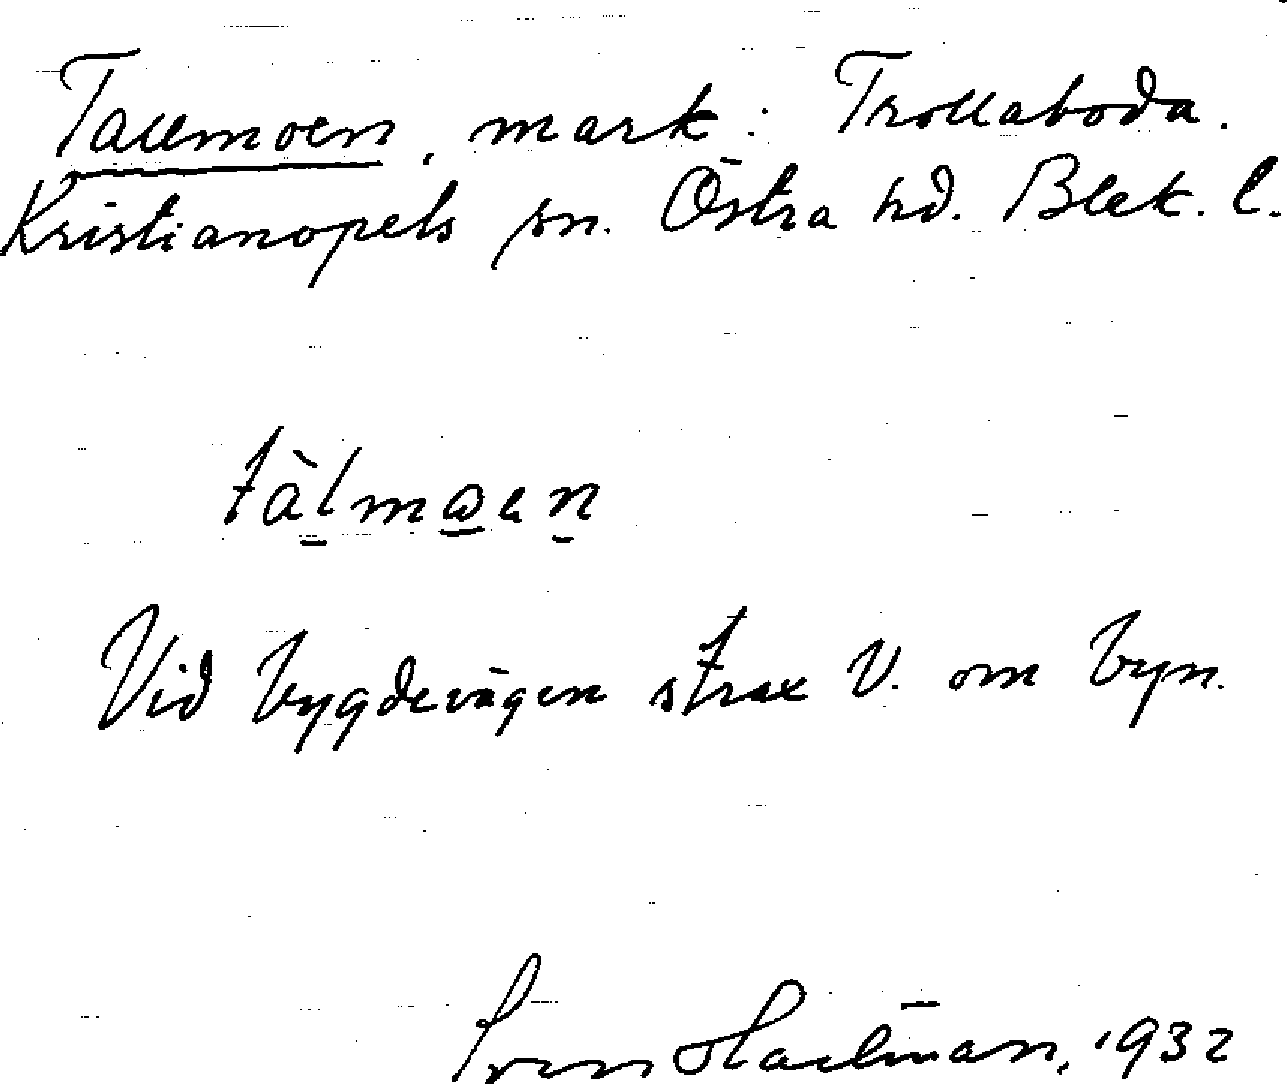 Tallmoen, mark: Trollaboda.
Kristianopels sn. Östra hd. Blek. l.
tàlmɷen
Vid bygdevägen strax V. om byn.
Sven Hallman, 1932